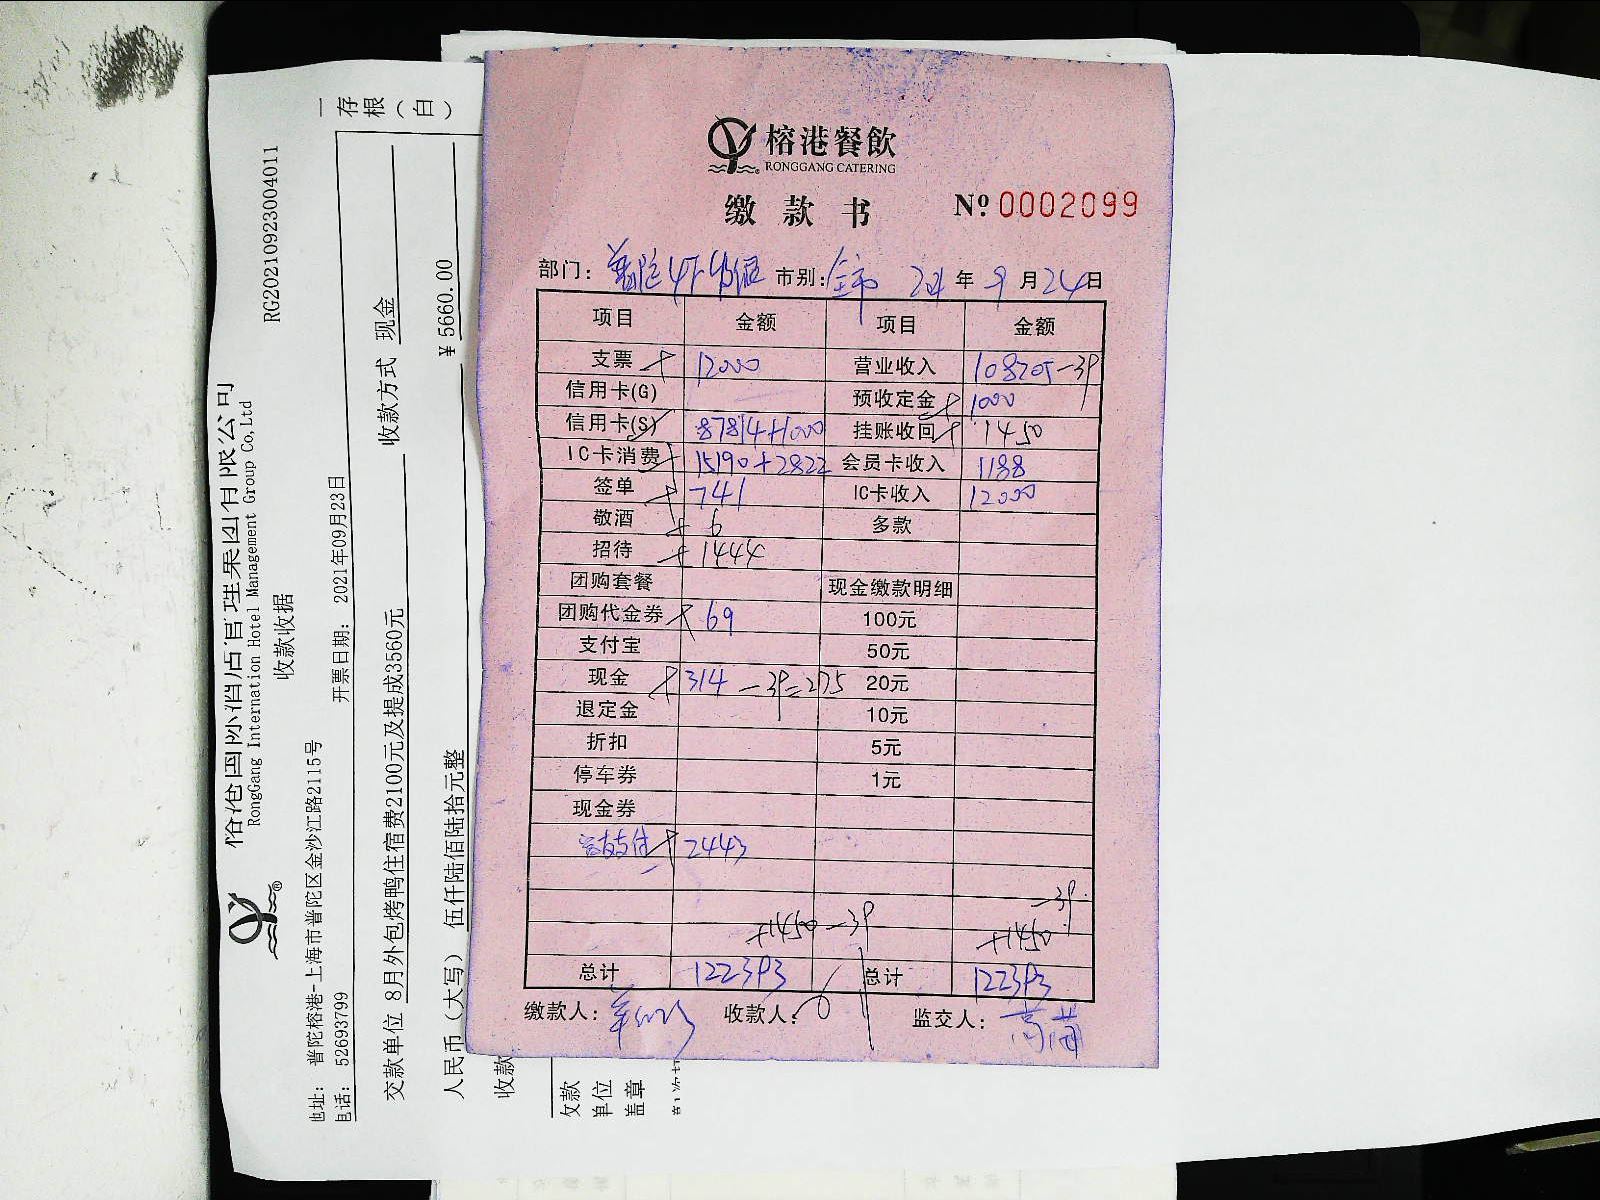 榕港餐飲
RONGGANG CATERING
缴款书 № 0002099
部门：普陀4F 市别：全市 2021年9月24日
项目 金额 项目 金额
支票 12000 营业收入 108205-39
信用卡(G) 预收定金 1000
信用卡(S) 87814+1000 挂账收回 1450
IC卡消费 15190+2822 会员卡收入 1188
签单 741 IC卡收入 12000
敬酒 6 多款
招待 1444
团购套餐 现金缴款明细
团购代金券 69 100元
支付宝 50元
现金 314-39=275 20元
退定金 10元
折扣 5元
停车券 1元
现金券
2443
-39
+1450-39 +1450
总计 122393 总计 122393
缴款人： 收款人： 监交人：
榕港国际酒店管理集团有限公司
RongGang International Hotel Management Group Co,Ltd
收款收据
RG20210923004011
地址： 普陀榕港-上海市普陀区金沙江路2115号
电话： 52693799
开票日期： 2021年09月23日
一存根（白）
交款单位 8月外包烤鸭住宿费2100元及提成3560元 收款方式 现金
人民币（大写） 伍仟陆佰陆拾元整 ¥5660.00
收款
收款
单位
盖章